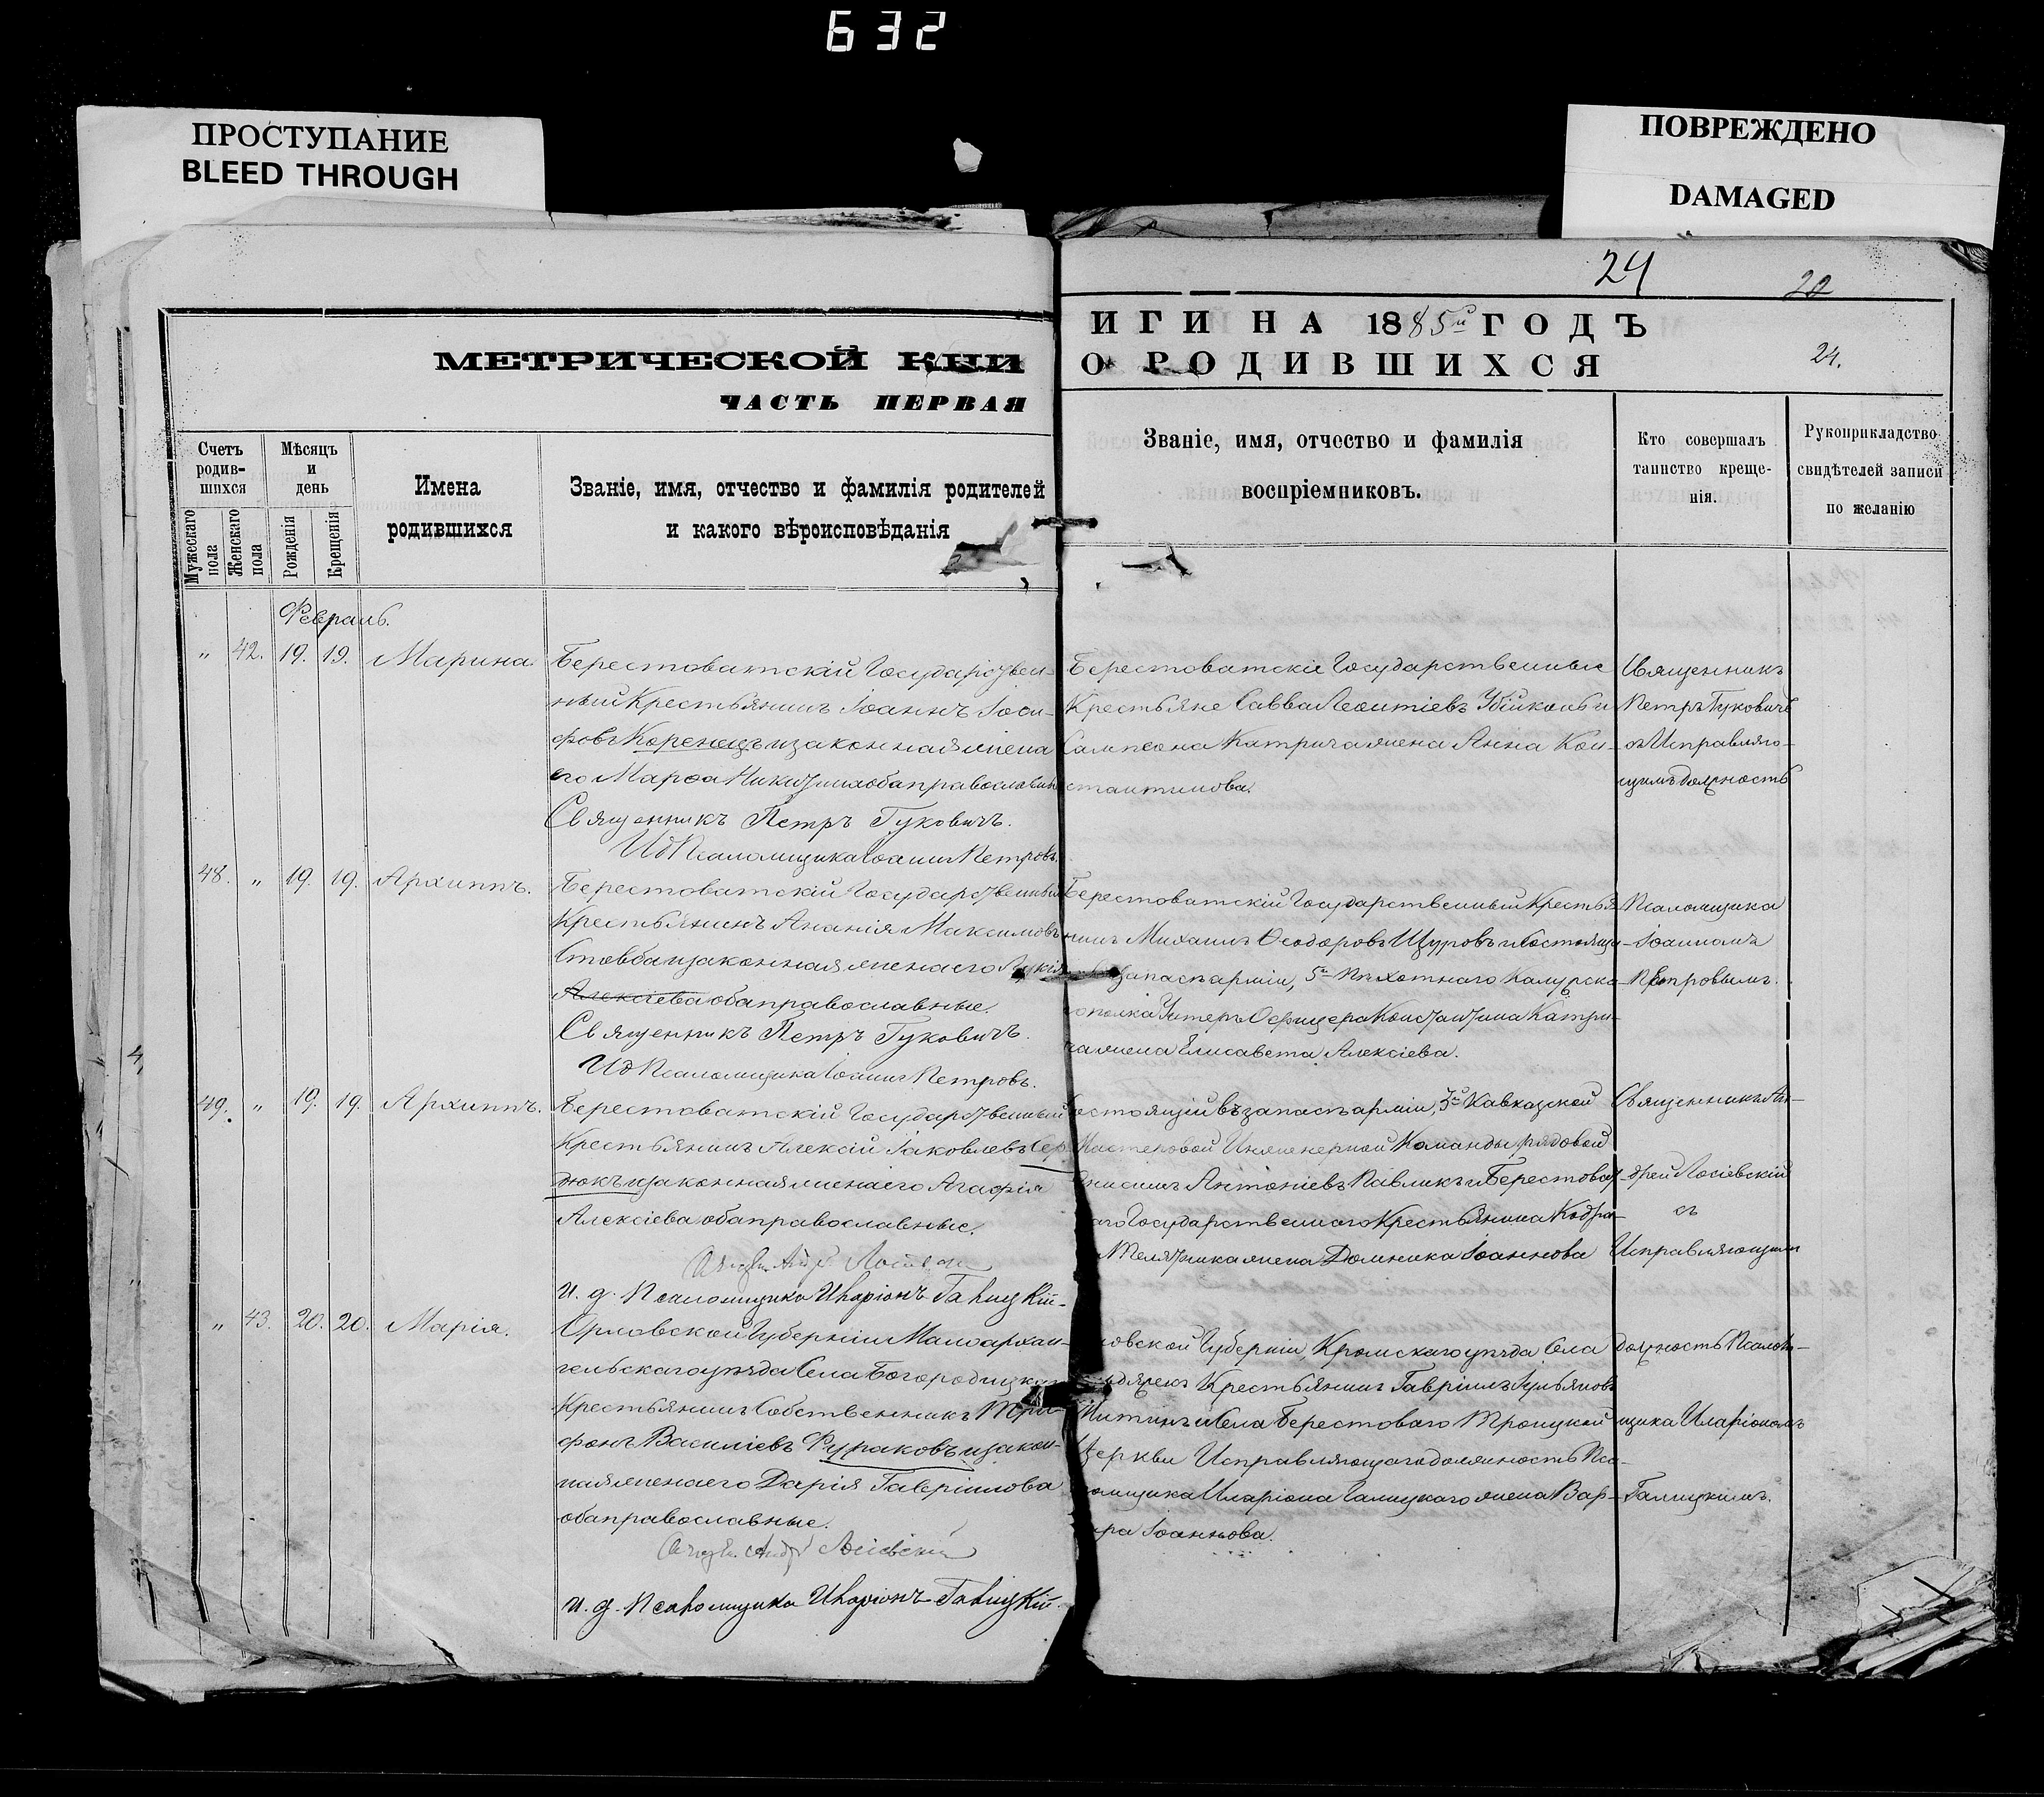 632
ПРОСТУПАНИЕ
BLEED THROUGH
ПОВРЕЖДЕНО
DAMAGED
24
22
МЕТРИЧЕСКОЙ КНИ
ИГИ НА 1885й ГОДЪ
ЧАСТЬ ПЕРВАЯ
О РОДИВШИХСЯ
24.
Счетъ родив- шихся
Мужескаго пола
Женскаго пола
Мѣсяцъ и день
Рожденія
Крещенія
Имена
родившихся
Званіе, имя, отчество и фамилія родителей
и какого вѣроисповѣданія
Званіе, имя, отчество и фамилія
воспріемниковъ.
Кто совершалъ
таинство креще-
нія.
Рукоприкладство
свидѣтелей записи
по желанію
Февраль.
" 42. 19. 19. Марина
Берестоватскій Государствен-
ный Крестьянинъ Іоаннъ Іоси-
фовъ Коренецъ и законная жена
его Марѳа Никитина оба православн
Священникъ Петръ Гуковичъ.
ИД Псаломщика Іоаннъ Петровъ.
Берестоватскіе Государственные
Крестьяне Савва Леонтіевъ и
Сампсона Катрича жена Анна Кон-
стантинова.
Священникъ
Петръ Гуковичъ
съ Исправляю-
щимъ должность
48. " 19. 19. Архиппъ.
Берестоватскій Государственный
Крестьянинъ Ананія Максимовъ
Стовба и законная жена его Лукія
Алексіева оба православные.
Священникъ Петръ Гуковичъ.
ИД Псаломщика Іоаннъ Петровъ.
Берестоватскій Государственный Крестья-
нинъ Михаилъ Ѳеодоровъ Щуровъ и Состоящ
запасѣ арміи, 5го Пѣхотнаго Калужска-
го полка Унтеръ Офицера Константина Катри-
ча жена Елисавета Алексіева.
Псаломщика
Іоанномъ
Петровымъ.
49. " 19. 19. Архиппъ.
Берестоватскій Государственный
Крестьянинъ Алексій Іаковлевъ Сер-
дюкъ и законная жена его Агафія
Алексіева оба православные.
И. д. Псаломщика Иларіонъ Галицкій.
Состоящій въ запасѣ арміи, 3й Кавказской
Мастеровой Инженерной Команды рядовой
Онисимъ Антоніевъ Павликъ и Берестоват
аго Государственнаго Крестьянина Кодра-
жена Домника Іоаннова
Священникъ Ан-
дрей Лосіевскій
съ
Исправляющимъ
" 43. 20. 20. Марія.
Орловской Губерніи Малоархан-
гельскаго уѣзда Села Богородицка
Крестьянинъ Собственникъ Три-
фонъ Василіевъ Фураковъ и закон-
ная жена его Дарія Гавріилова
оба православные.
Священ. Андр Лосіевскій
И. д. Псаломщика Иларіонъ Галицкій.
ловской Губерніи, Кромскаго уѣзда Села
Крестьянинъ Гавріилъ
Никитинъ и Села Берестоваго Троицкой
Церкви Исправляющаго должность Пса-
ломщика Иларіона Галицкаго жена Вар-
вара Іоаннова.
должность Псалом-
щика Иларіономъ
Галицкимъ.